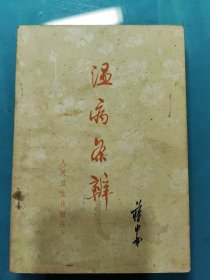 温病条辨
人民卫生出版社